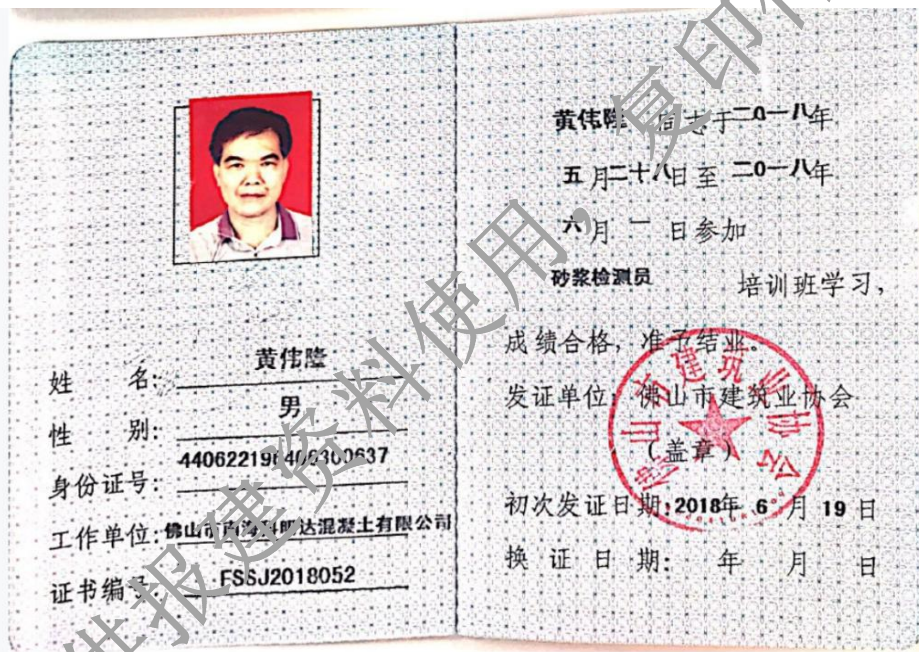 姓 名: 黄伟隆
性 别: 男
身份证号: 440622196406300637
工作单位: 佛山市南海科明达混凝土有限公司
证书编号: FSSJ2018052
黄伟隆 同志于二0一八年
五月二十八日至二0一八年
六月一日参加
砂浆检测员 培训班学习,
成绩合格,准予结业。
发证单位: 佛山市建筑业协会
(盖章)
初次发证日期: 2018年 6 月 19 日
换证日期: 年 月 日
佛山市建筑业协会
供报建资料使用,复印